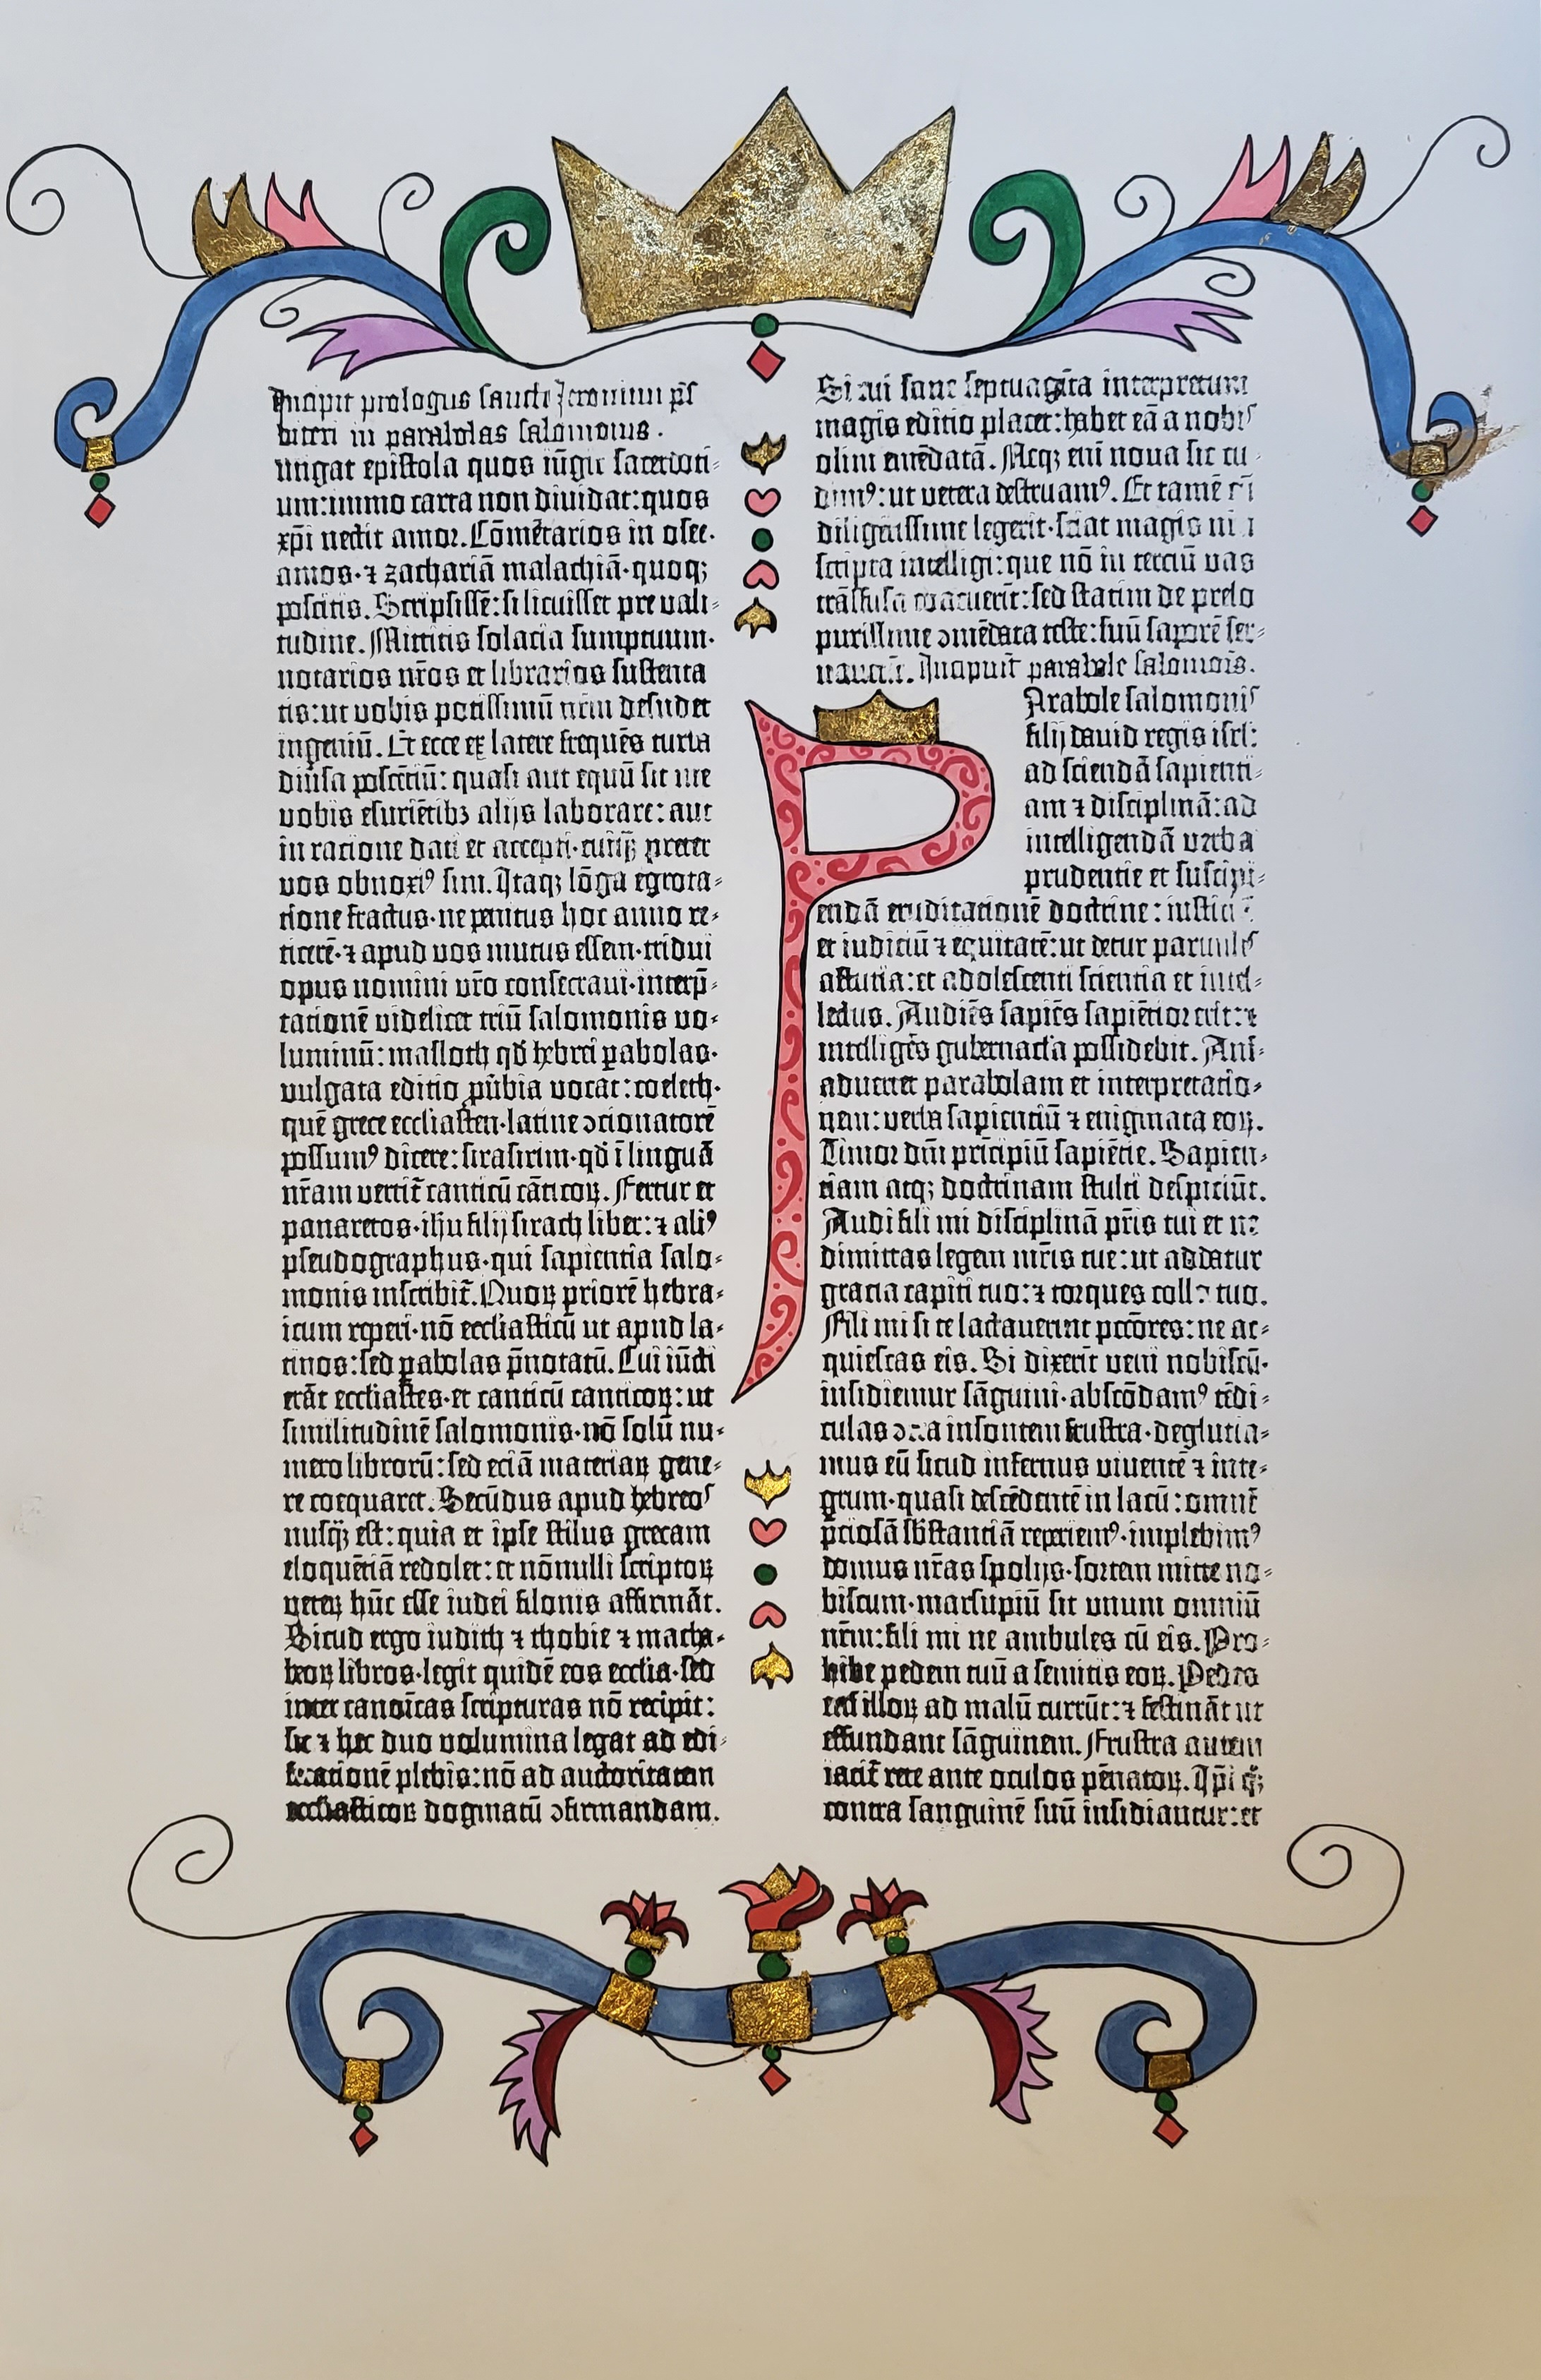 Incipit prologus sancti Jeronimi pr̄s
biteri in parabolas salomonis.
ungat epistola quos iūgit sacerdoti⸗
um: immo carta non diuidat: quos
xp̄i nectit amor. Cōmētarios in osee·
amos· ⁊ zachariā malachiā· quoqꝫ
poscitis. Scripsissē: si licuisset pre vali⸗
tudine. Mittitis solacia sumptuum·
notarios nr̄os et librarios sustenta
tis: ut vobis potissimū nr̄m desudet
ingeniū. Et ecce ex latere frequēs turba
diūsa poscētiū: quasi aut equū sit me
vobis esuriētibꝫ alijs laborare: aut
in racione dati et accepti· cuiꝗ̄ preter
vos obnoxiꝰ sim. Itaqꝫ lōga egrota⸗
tione fractus· ne penitus hoc anno re⸗
ticerē· ⁊ apud vos mutus essem· tridui
opus nomini vr̄o consecraui· interp̄⸗
tationē videlicet triū salomonis vo⸗
luminū: masloth qd̄ hebrei ꝑabolas·
vulgata editio ꝓūbia vocat: coeleth·
quē grece eccliasten· latine ↄcionatorē
possumꝰ dicere: sirasirim· qd̄ ī linguā
nr̄am vertit̄ canticū cāticoꝝ. Fertur et
panaretos· ihu filij sirach liber: ⁊ aliꝰ
pseudographus· qui sapientia salo⸗
monis inscribit̄. Quoꝝ priorē hebra⸗
icum reperi· nō ecclīasticū ut apud la⸗
tinos: sed ꝑabolas p̄notatū. Cui iūcti
erāt ecclīastes· et canticū canticoꝝ: ut
similitudinē salomonis· nō solū nu⸗
mero librorū: sed eciā materiaꝝ gene⸗
re coequaret. Secūdus apud hebreos
nusꝗ̄ est: quia et ipse stilus grecam
eloquētiā redolet: et nōnulli scriptoꝝ
veteꝝ hūc esse iudei filonis affirmāt.
Sicud ergo iudith ⁊ thobie ⁊ macha⸗
beoꝝ libros· legit quidē eos ecclīa· sed
inter canoīcas scripturas nō recipit:
sic ⁊ hec duo volumina legat ad edi⸗
ficationē plebis: nō ad auctoritatem
ecclīasticoꝝ dogmatū ↄfirmandam.
Si cui sane septuagīta interpretum
magis editio placet: habet eā a nobis
olim emēdatā. Neqꝫ eni noua sic cu
dimꝰ: ut vetera destruamꝰ. Et tamē
diligētissime legerit· sciat magis
scripta intelligi: que nō in terciū vas
trāsfusa coacuerit: sed statim de prelo
purissime ↄmēdata teste: suū saporē ser⸗
Incipiunt̄ parabole salomōis.
P
Arabole salomonis
filij dauid regis isrl:
ad sciendā sapienti⸗
am ⁊ disciplinā: ad
intelligendā verba
prudentie et suscipi⸗
endā eruditationē doctrine: iusticiā
et iudiciū ⁊ equitatē: ut detur paruulis
astutia: et adolescenti scientia et intel⸗
lectus. Audiēs sapiēs sapiētior erit: ⁊
intelligēs gubernacla possidebit. Ani⸗
aduertet parabolam et interpretatio⸗
nem: verba sapientiū ⁊ enigmata eoꝝ.
Timor dn̄i prīcipiū sapiētie. Sapien⸗
tiam atqꝫ doctrinam stulti despiciūt.
Audi fili mi disciplinā pr̄is tui et ne
dimittas legem mr̄is tue: ut addatur
gracia capiti tuo: ⁊ torques collo tuo.
Fili mi si te lactauerint pcc̄ores: ne ac⸗
quiescas eis. Si dixerīt veni nobiscū·
insidiemur sāguini· abscōdamꝰ tēdi⸗
culas ↄtra insontem frustra· deglutia⸗
mus eū sicud infernus viuentē ⁊ inte⸗
grum· quasi descēdentē in lacū: omnē
p̄ciosā sb̄stantiā reperiemꝰ· implebimꝰ
domus nr̄as spolijs· sortem mitte no⸗
biscum· marsupiū sit unum omniū
nr̄m: fili mi ne ambules cū eis. Pro⸗
hibe pedem tuū a semitis eoꝝ. Pedes
eni illoꝝ ad malū currūt: ⁊ festināt ut
effundant sāguinem. Frustra autem
iacit̄ rete ante oculos pēnatoꝝ. Ip̄i qꝫ
contra sanguinē suū insidiantur: et